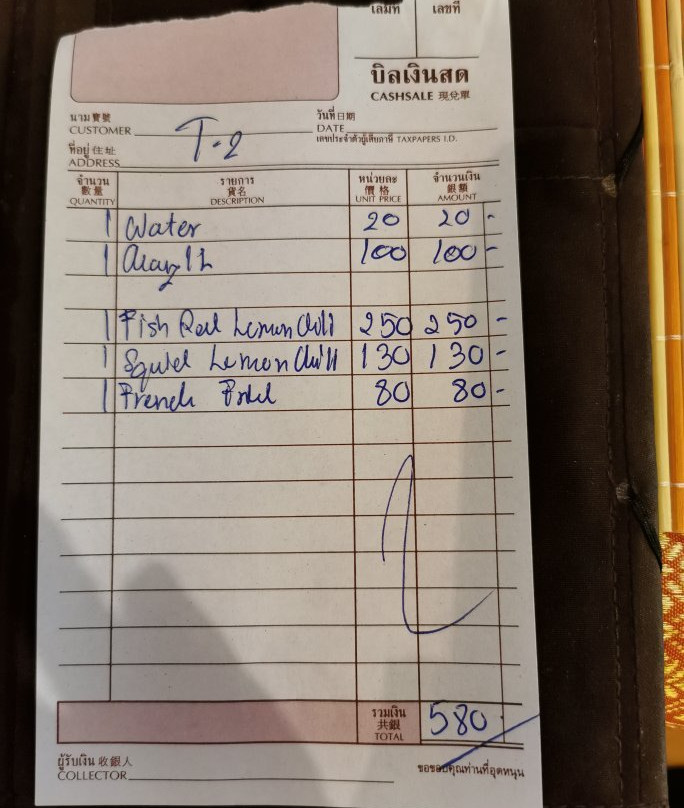 เล่มที่ เลขที่
บิลเงินสด
CASHSALE 現兌單
นาม寶號
CUSTOMER T-2
วันที่日期
DATE
ที่อยู่住址
เลขประจำตัวผู้เสียภาษี TAXPAPERS I.D.
ADDRESS
จำนวน รายการ หน่วยละ จำนวนเงิน
數量 貨名 價格 銀額
QUANTITY DESCRIPTION UNIT PRICE AMOUNT
1 Water 20 20 -
1 100 100 -
1 Fish Red Lemon Chili 250 250 -
1 Squid Lemon Chili 130 130 -
1 French 80 80 -
รวมเงิน
共銀
TOTAL 580 -
ผู้รับเงิน 收銀人
COLLECTOR
ขอขอบคุณท่านที่อุดหนุน